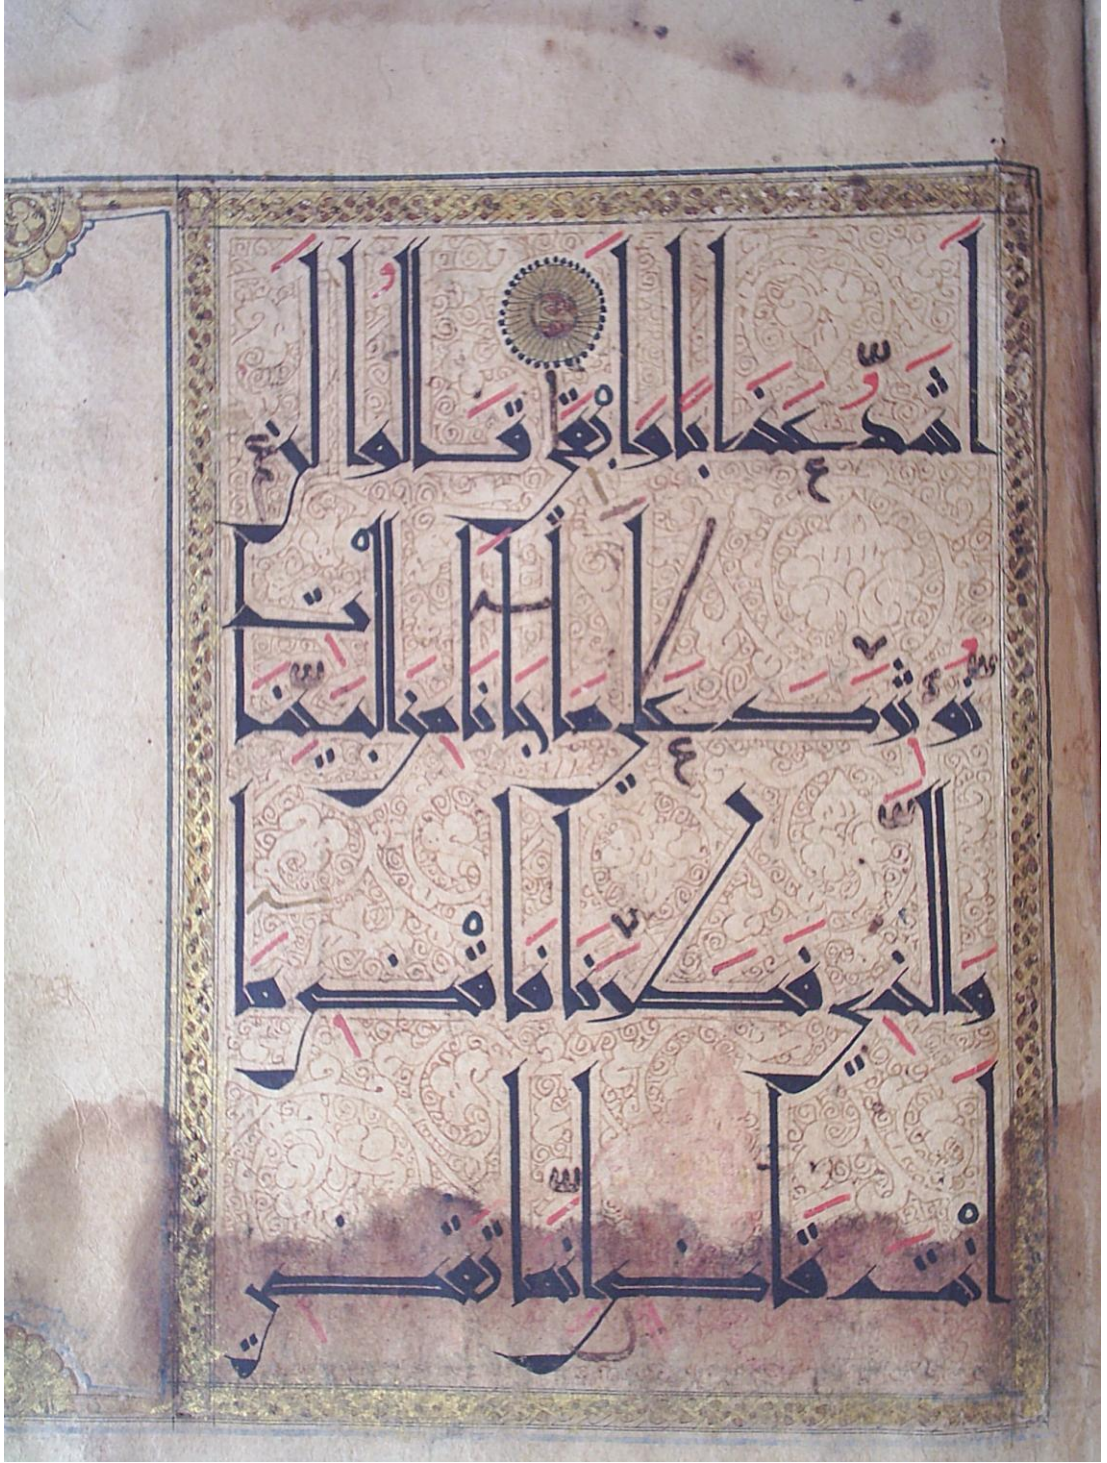 اَشَدُّ عَذَابًا وَاَبْقَى قَالُوا لَن
نُّؤْثِرَكَ عَلَى مَا جَاءَنَا مِنَ الْبَيِّنَاتِ
وَالَّذِي فَطَرَنَا فَاقْضِ مَا
اَنْتَ قَاضٍ اِنَّمَا تَقْضِي